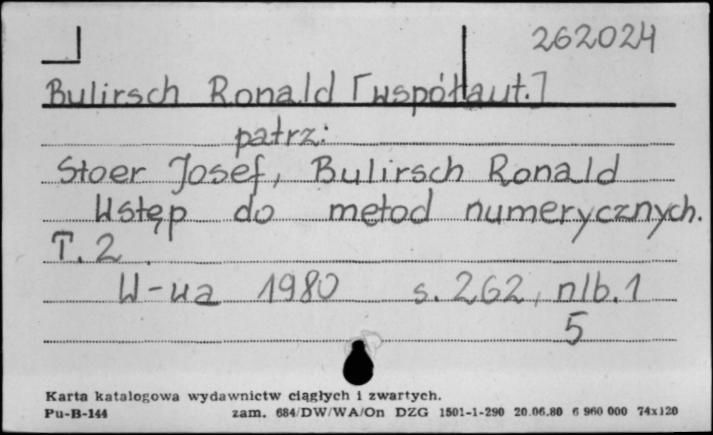 262024
Bulirsch Ronald [współaut.]
patrz:
Stoer Josef, Bulirsch Ronald
Wstęp do metod numerycznych.
T. 2.
W-wa 1980 s. 262, nlb. 1
5
Karta katalogowa wydawnictw ciągłych i zwartych.
Pu-B-144 zam. 684/DW/WA/On DZG 1501-1-290 20.06.80 6 960 000 74x120